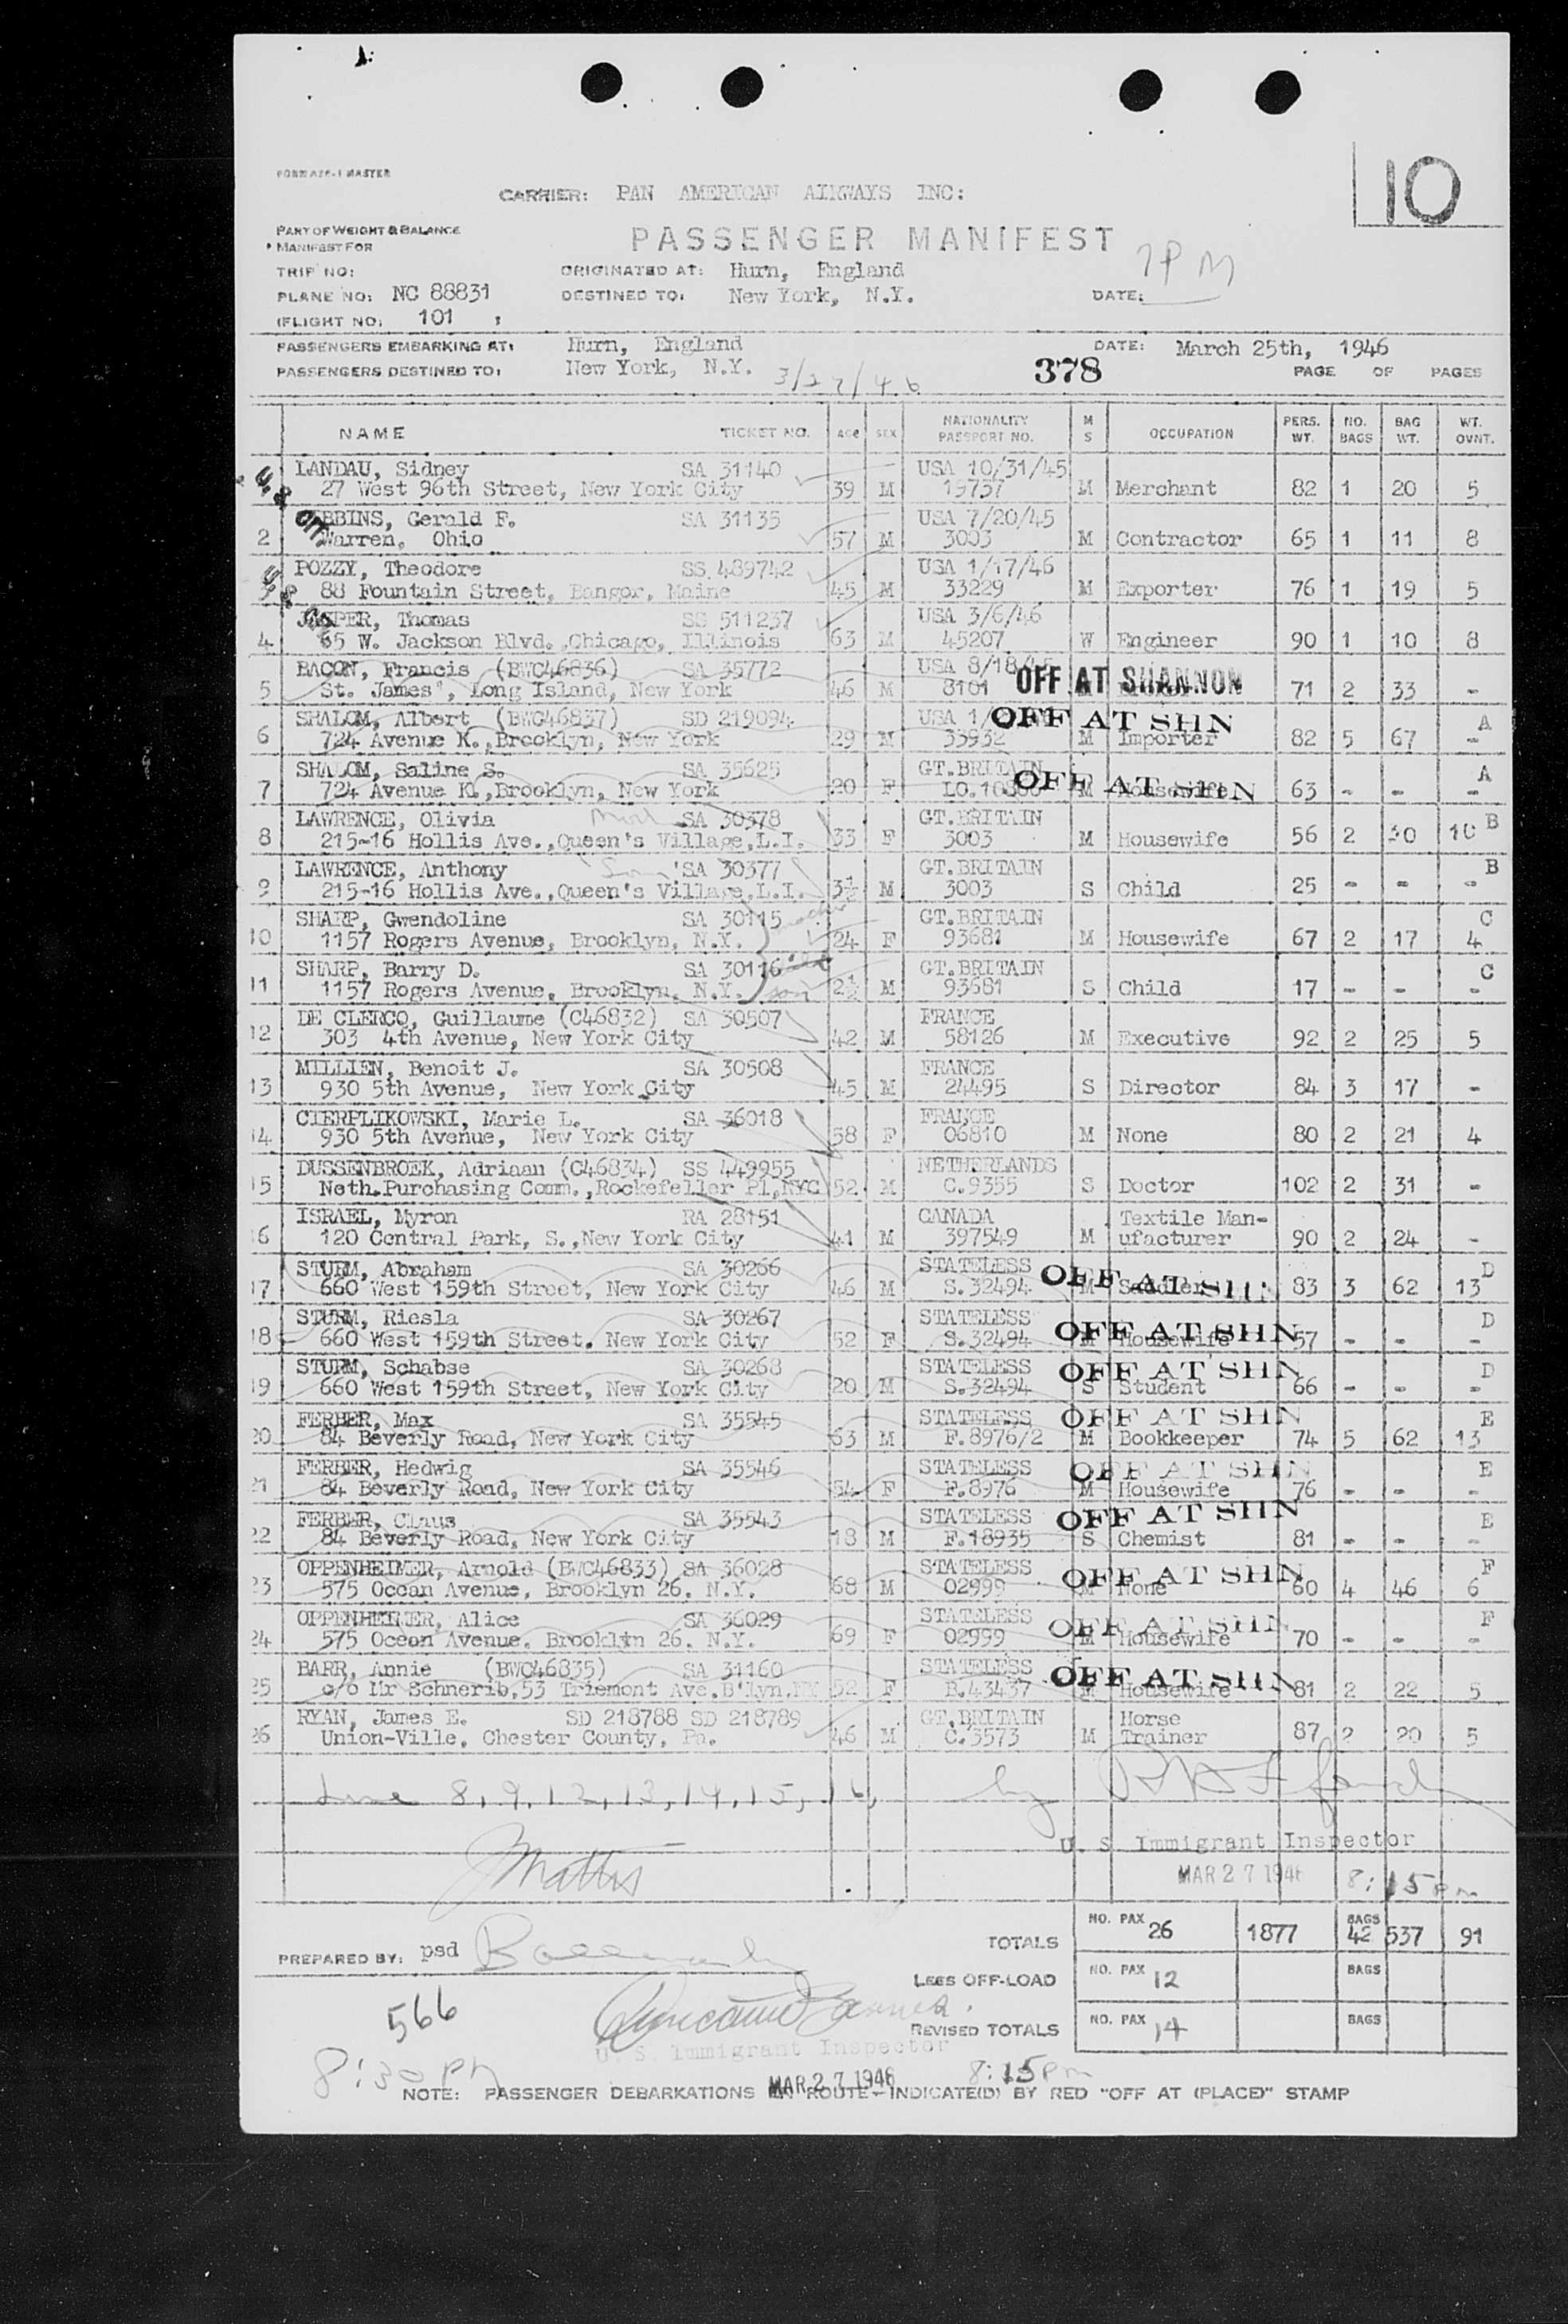 10
FORM ATF-1 MASTER
CARRIER: PAN AMERICAN AIRWAYS INC:
PART OF WEIGHT & BALANCE
MANIFEST FOR
PASSENGER MANIFEST
7PM
TRIP NO: ORIGINATED AT: Hurn, England
PLANE NO: NC 88831 DESTINED TO: New York, N.Y. DATE:
(FLIGHT NO: 101 )
PASSENGERS EMBARKING AT: Hurn, England DATE: March 25th, 1946
PASSENGERS DESTINED TO: New York, N.Y. 3/27/46 378 PAGE OF PAGES
NAME TICKET NO. AGE SEX NATIONALITY PASSPORT NO. M S OCCUPATION PERS. WT. NO. BAGS BAG WT. WT. OVNT.
LANDAU, Sidney SA 31140 USA 10/31/45
27 West 96th Street, New York City 39 M 19757 M Merchant 82 1 20 5
BBINS, Gerald F. SA 31135 USA 7/20/45
2 Warren, Ohio 57 M 3003 M Contractor 65 1 11 8
POZZY, Theodore SS 489742 USA 1/17/46
88 Fountain Street, Bangor, Maine 45 M 33229 M Exporter 76 1 19 5
PER, Thomas SS 511237 USA 3/6/46
4 65 W. Jackson Blvd.,Chicago, Illinois 63 M 45207 W Engineer 90 1 10 8
BACON, Francis (BWC46836) SA 35772 USA 8/18/45
5 St. James', Long Island, New York 46 M 8101 OFF AT SHANNON 71 2 33 -
SHALOM, Albert (BWC46837) SD 219094 USA 1/ OFF AT SHN A
6 724 Avenue K.,Brooklyn, New York 29 M 33932 M Importer 82 5 67 -
SHALOM, Saline S. SA 35625 GT.BRITAIN OFF AT SHN A
7 724 Avenue K.,Brooklyn, New York 20 F LO.10 M Housewife 63 - - -
LAWRENCE, Olivia SA 30378 GT.BRITAIN B
8 215-16 Hollis Ave.,Queen's Village,L.I. 33 F 3003 M Housewife 56 2 30 10
LAWRENCE, Anthony Son SA 30377 GT.BRITAIN B
9 215-16 Hollis Ave.,Queen's Village,L.I. 3½ M 3003 S Child 25 - - -
SHARP, Gwendoline SA 30115 GT.BRITAIN C
10 1157 Rogers Avenue, Brooklyn, N.Y. 24 F 93681 M Housewife 67 2 17 4
SHARP, Barry D. SA 30116 GT.BRITAIN C
11 1157 Rogers Avenue, Brooklyn, N.Y. son 2½ M 93681 S Child 17 - - -
DE CLERCQ, Guillaume (C46832) SA 30507 FRANCE
12 303 4th Avenue, New York City 42 M 58126 M Executive 92 2 25 5
MILLIEN, Benoit J. SA 30508 FRANCE
13 930 5th Avenue, New York City 45 M 24495 S Director 84 3 17 -
CIERPLIKOWSKI, Marie L. SA 36018 FRANCE
14 930 5th Avenue, New York City 58 F 06810 M None 80 2 21 4
DUSSENBROEK, Adriaan (C46834) SS 449955 NETHERLANDS
15 Neth.Purchasing Comm.,Rockefeller Pl,NYC 52 M C.9355 S Doctor 102 2 31 -
ISRAEL, Myron RA 28151 CANADA Textile Man-
16 120 Central Park, S.,New York City 41 M 397549 M ufacturer 90 2 24 -
STURM, Abraham SA 30266 STATELESS OFF AT SHN D
17 660 West 159th Street, New York City 46 M S.32494 M Saddler 83 3 62 13
STURM, Riesla SA 30267 STATELESS OFF AT SHN D
18 660 West 159th Street, New York City 52 F S.32494 M Housewife 57 - - -
STURM, Schabse SA 30268 STATELESS OFF AT SHN D
19 660 West 159th Street, New York City 20 M S.32494 S Student 66 - - -
FERBER, Max SA 35545 STATELESS OFF AT SHN E
20 84 Beverly Road, New York City 63 M F.8976/2 M Bookkeeper 74 5 62 13
FERBER, Hedwig SA 35546 STATELESS OFF AT SHN E
21 84 Beverly Road, New York City 54 F F.8976 M Housewife 76 - - -
FERBER, Claus SA 35543 STATELESS OFF AT SHN E
22 84 Beverly Road, New York City 18 M F.18935 S Chemist 81 - - -
OPPENHEIMER, Arnold (BWC46833) SA 36028 STATELESS OFF AT SHN F
23 575 Ocean Avenue, Brooklyn 26. N.Y. 68 M 02999 M None 60 4 46 6
OPPENHEIMER, Alice SA 36029 STATELESS OFF AT SHN F
24 575 Ocean Avenue, Brooklyn 26. N.Y. 69 F 02999 M Housewife 70 - - -
BARR, Annie (BWC46835) SA 31160 STATELESS OFF AT SHN
25 c/o Mr Schnerib,53 Triemont Ave.B'lyn,NY 52 F B.43437 M Housewife 81 2 22 5
RYAN, James E. SD 218788 SD 218789 GT.BRITAIN Horse
26 Union-Ville, Chester County, Pa. 46 M C.3573 M Trainer 87 2 20 5
Line 8,9,12,13,14,15,16, by
U. S. Immigrant Inspector
MAR 27 1946 8:15pm
TOTALS NO. PAX 26 1877 BAGS 42 537 91
PREPARED BY: psd
LESS OFF-LOAD NO. PAX 12 BAGS
566
REVISED TOTALS NO. PAX 14 BAGS
U. S. Immigrant Inspector
8:30 PM MAR 27 1946 8:15pm
NOTE: PASSENGER DEBARKATIONS EN ROUTE—INDICATE(D) BY RED "OFF AT (PLACE)" STAMP